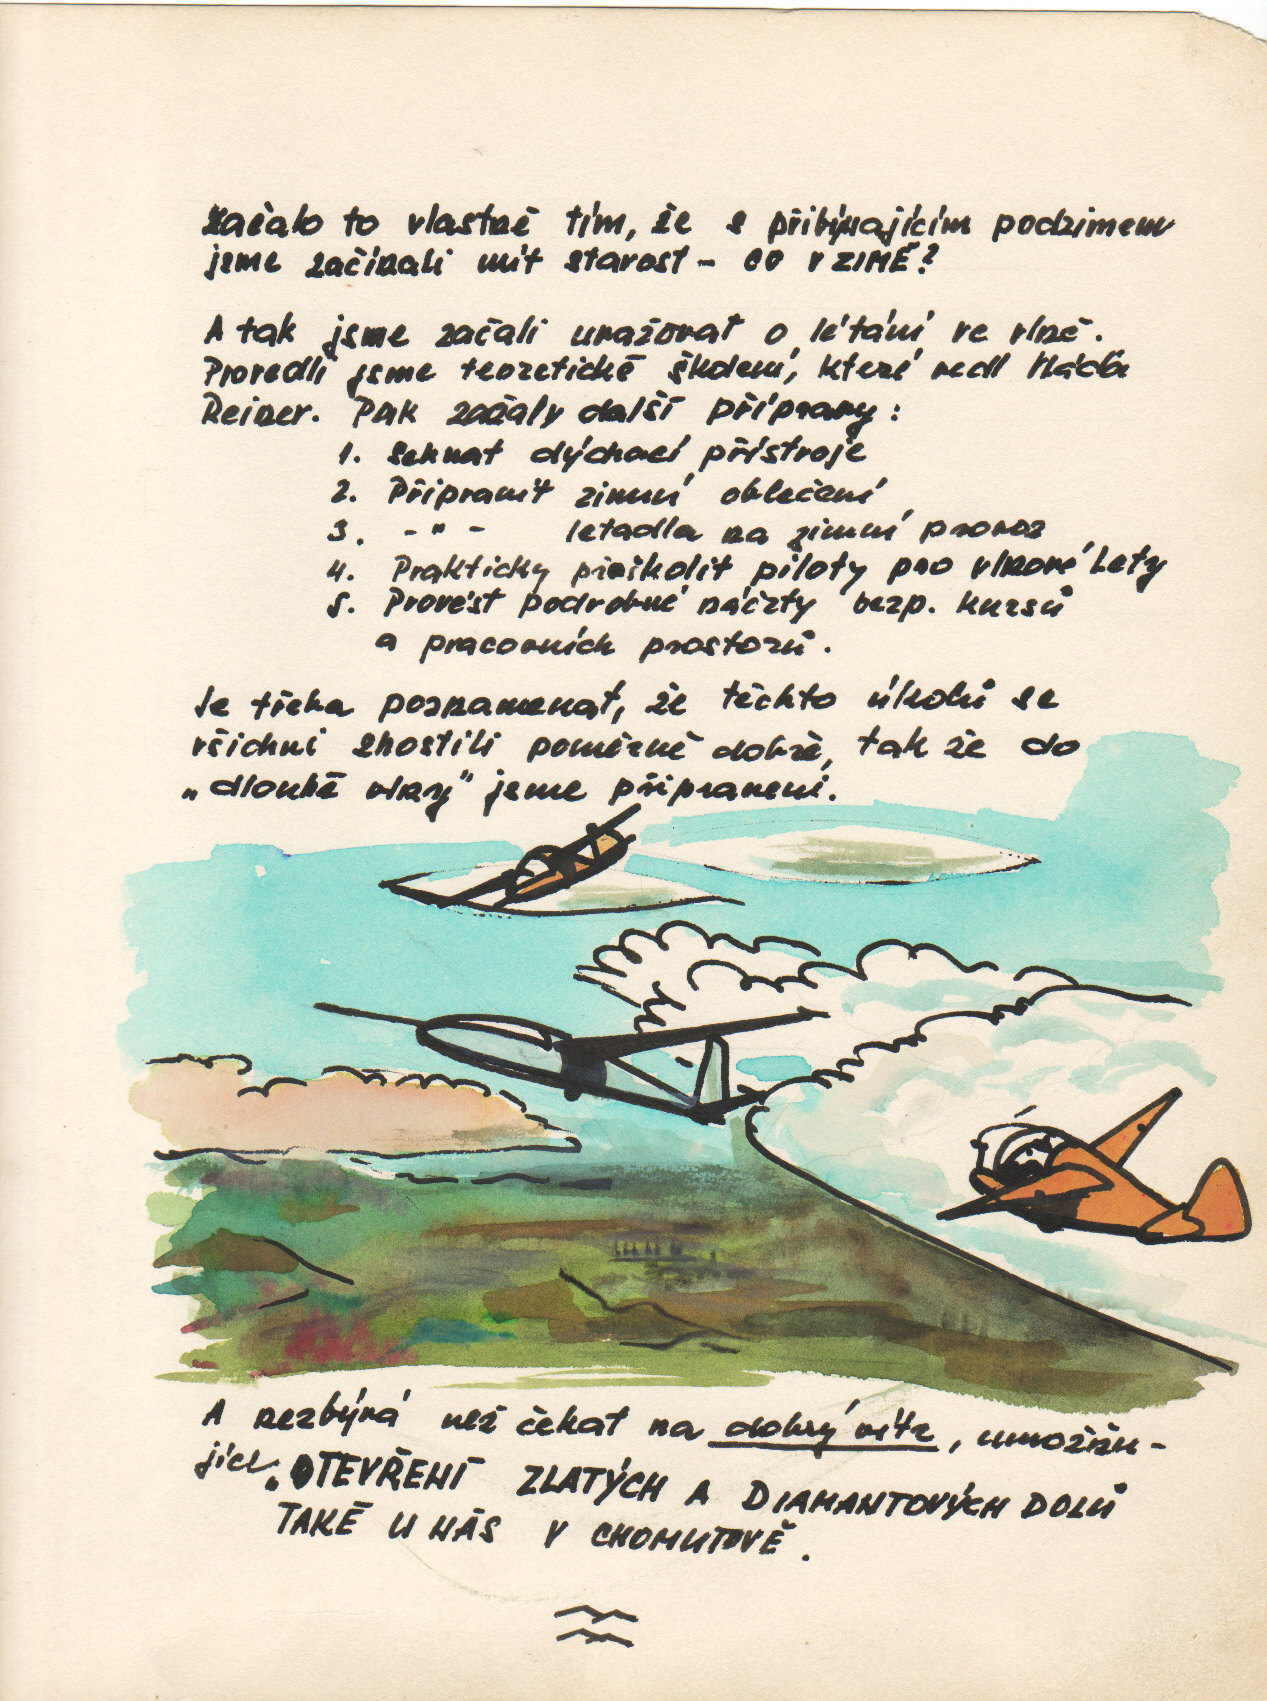 Začalo to vlastně tím, že s přibývajícím podzimem
jsme začínali mít starost - co v ZIMĚ?
A tak jsme začali uvažovat o létání ve vlně.
Provedli jsme teoretické školení, které vedl Hádа
Reiner. Pak začaly další přípravy:
1. Sehnat dýchací přístroje
2. Připravit zimní oblečení
3. - " - letadla na zimní provoz
4. Prakticky přeškolit piloty pro vlnové lety
5. Provést podrobné náčrty bezp. kursů
a pracovních prostorů.
Je třeba poznamenat, že těchto úkolů se
všichni zhostili poměrně dobře, tak že do
„dlouhé vlny" jsme připraveni.
A nezbývá než čekat na dobrý vítr, umožňu-
jící „OTEVŘENÍ ZLATÝCH A DIAMANTOVÝCH DOLŮ
TAKÉ U NÁS V CHOMUTOVĚ.